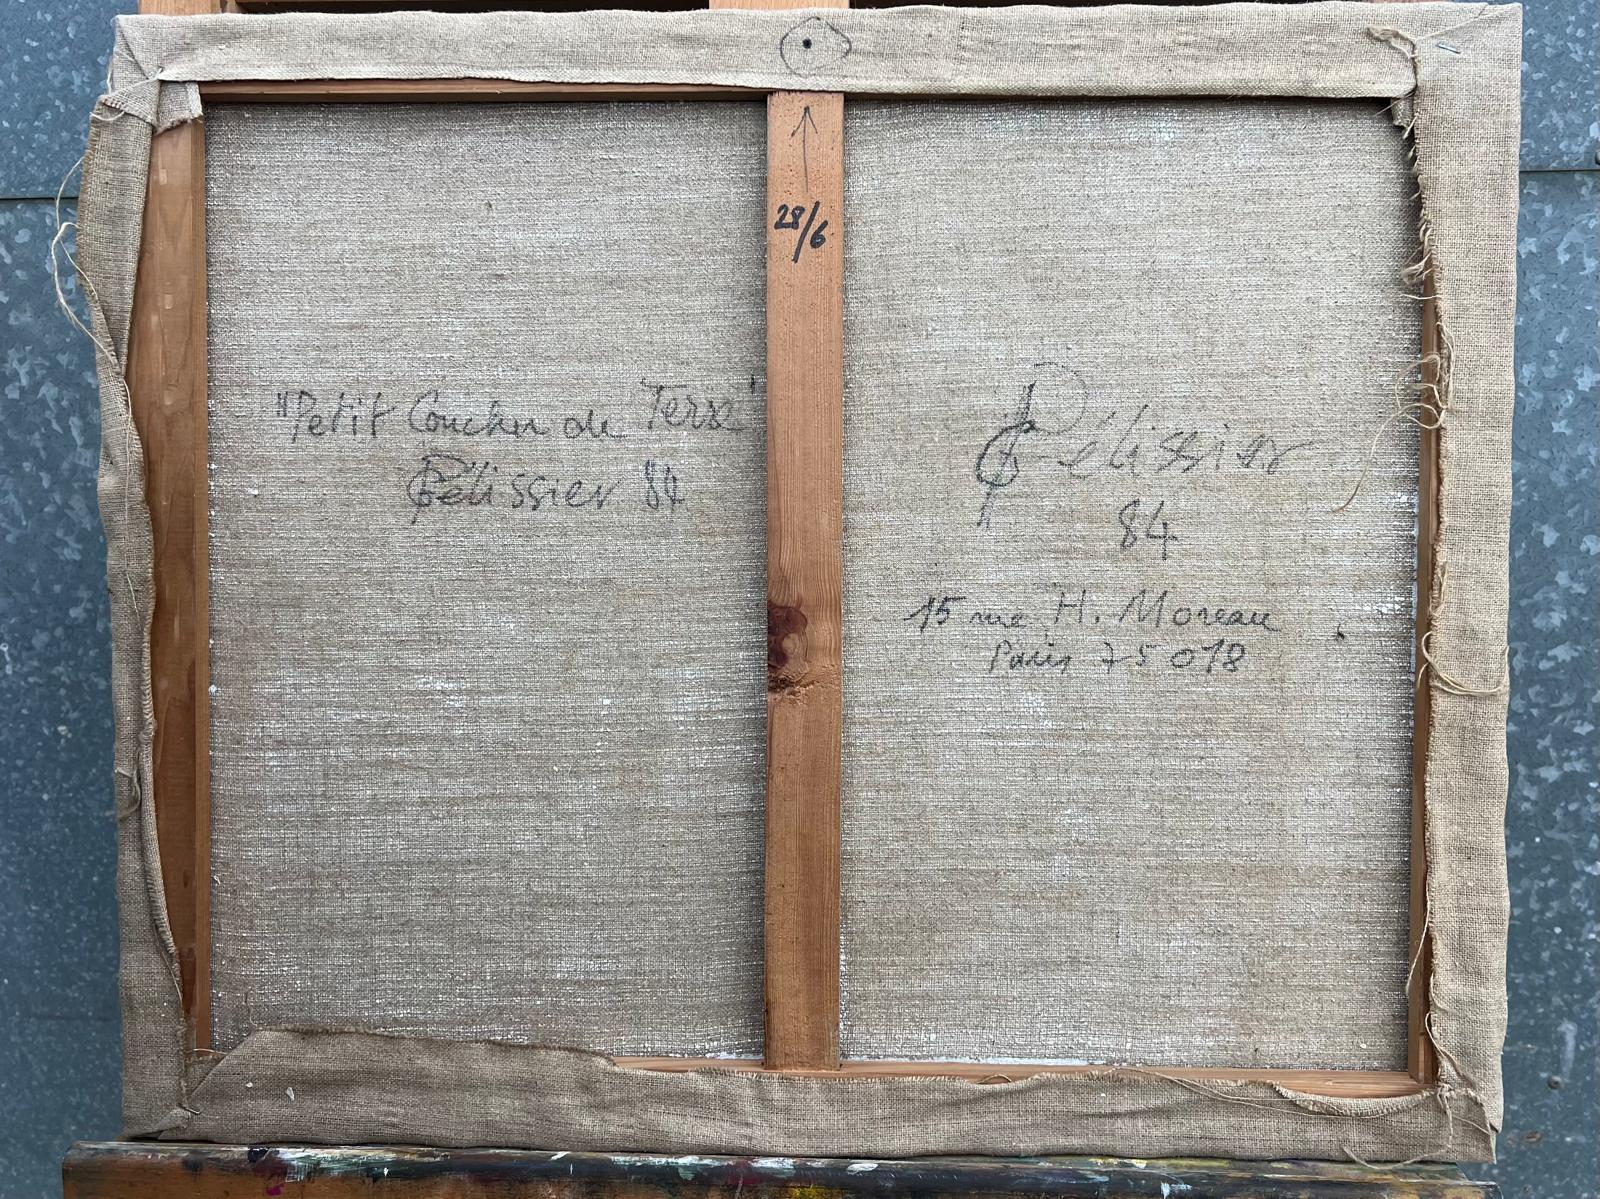 28/6
"Petit Coucher de Terre"
Pélissier 84
Pélissier
84
15 rue H. Moreau
Paris 75018